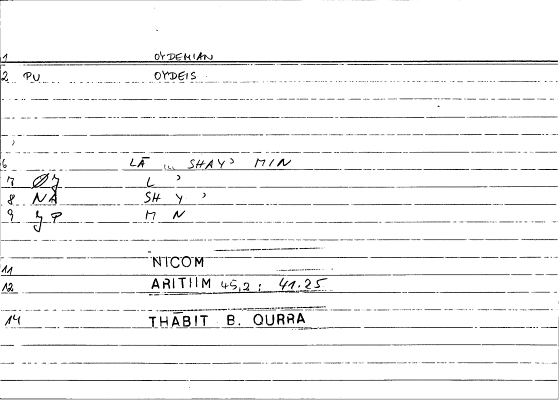 1 OYDEMIAN
2 PU OYDEIS
6 LĀ ... SHAY' MIN
7 ØJ L '
8 NA SH Y '
9 JP M N
11 NICOM
12 ARITIIM 45,2 : 41.25
14 THĀBIT B. QURRA